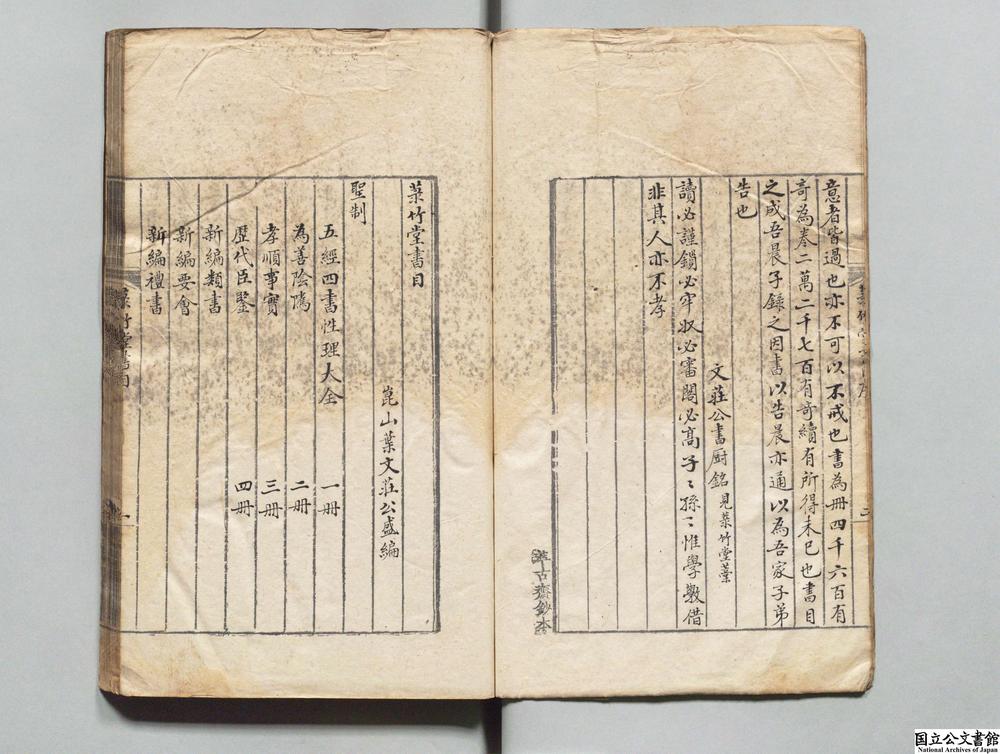 意者皆過也亦不可以不戒也書為冊四千六百有
奇為奏二萬二千七百有竒續有所得未已也書目
之成吾晨子錄之因書以告晨亦通以為吾家子弟
告也
文莊公書厨銘見菉竹堂藁
讀必謹鎖必牢収必審閣必髙子〻孫〻惟學斆借
非其人亦不孝
菉竹堂書目
崑山葉文莊公盛編
聖制
五經四書性理大全 一冊
為善陰隲 二冊
孝順事實 三冊
歴代臣鑒 四冊
新編類書
新編要會
新編禮書
竹堂書目
一
古齋鈔本
国立公文書館
National Archives of Japan